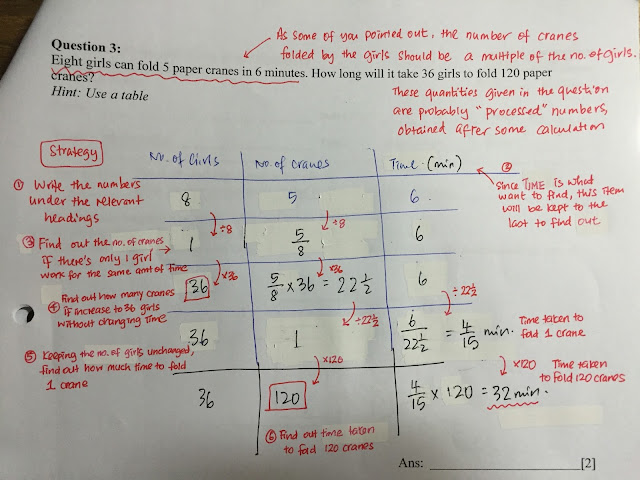 As some of you pointed out, the number of cranes
folded by the girls should be a multiple of the no. of girls.
Question 3:
Eight girls can fold 5 paper cranes in 6 minutes. How long will it take 36 girls to fold 120 paper
cranes?
Hint: Use a table
These quantities given in the question
are probably "processed" numbers,
obtained after some calculation
Strategy
No. of Girls No. of Cranes Time (min)
① Write the numbers
under the relevant
headings
8 5 6
②
Since TIME is what
want to find, this item
will be kept to the
last to find out
÷8 ÷8
③ Find out the no. of cranes
if there's only 1 girl
work for the same amt of time
1 5/8 6
×36 ×36
④ Find out how many cranes
if increase to 36 girls
without changing time
36 5/8 × 36 = 22 1/2 6
÷22 1/2 ÷22 1/2
36 1 6/22 1/2 = 4/15 min.
Time taken to
fold 1 crane
⑤ Keeping the no. of girls unchanged,
find out how much time to fold
1 crane
×120 ×120
Time taken
to fold 120 cranes
36 120 4/15 × 120 = 32 min.
⑥ Find out time taken
to fold 120 cranes
Ans: ____________________[2]